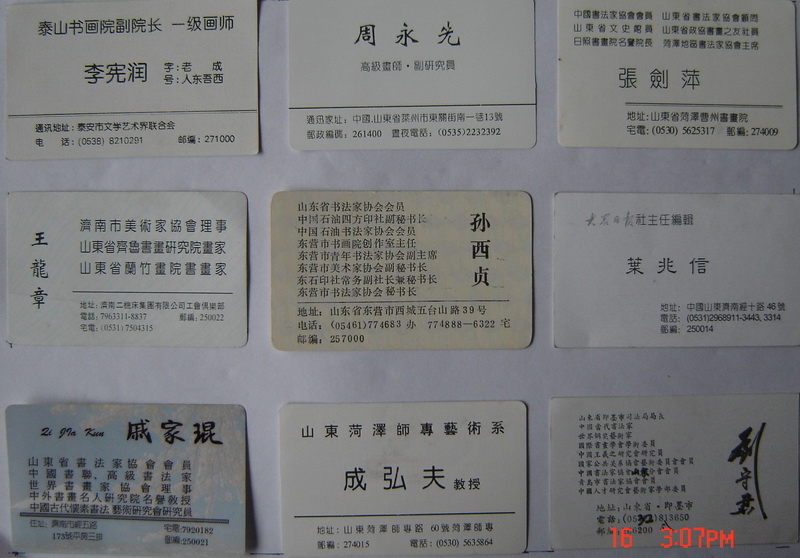 泰山书画院副院长 一级画师
李宪润 字:老成
号:人东吾西
通讯地址:泰安市文学艺术界联合会
电 话:(0538) 8210291 邮编:271000
周永先
高級畫師·副研究員
通讯家址:中國.山東省萊州市東關街南一巷13號
郵政編碼:261400 晝夜電話:(0535)2232392
中國書法家協會會員 山東省書法家協會顧問
山東省文史館員 山東省政協書畫之友社員
日照書畫院名譽院長 菏澤地區書法家協會主席
張劍萍
地址:山東省菏澤曹州書畫院
宅電:(0530) 5625317 郵編:274009
王龍章
濟南市美術家協會理事
山東省齊魯書畫研究院畫家
山東省蘭竹畫院書畫家
地址:濟南二機床集團有限公司工會俱樂部
電話:7963311-8837 郵編:250022
宅電:(0531) 7504315
山东省书法家协会会员
中国石油四方印社副秘书长
中国石油书法家协会会员
东营市书画院创作室主任
东营市青年书法家协会副主席
东营市美术家协会副秘书长
东石印社常务副社长兼秘书长
东营市书法家协会秘书长
孙西贞
地址:山东省东营市西城五台山路39号
电话:(05461)774683 办 774888-6322 宅
邮编:257000
大眾日報社主任編輯
葉兆信
地址:中國山東濟南經十路46號
電話:(0531)2968911-3443, 3314
郵編:250014
Qi Jia Kun 戚家琨
山東省書法家協會會員
中國書聯、高級書法家
世界書畫家協會理事
中外書畫名人研究院名譽教授
中國古代懷素書法藝術研究會研究員
住址:濟南市經五路 宅電:7920182
175號平房三排 郵編:250021
山東菏澤師專藝術系
成弘夫 教授
地址:山東菏澤師專路60號菏澤師專
郵編:274015 電話:(0530) 5635864
山東省即墨市司法局局長
中國當代書法家
世界銅奖藝術家
國際書畫學會學術委員
中國王羲之研究會研究員
青島市書法家協會會員
中國人才研究會藝術家學部委員
地址:山東省·即墨市
16 3:07PM